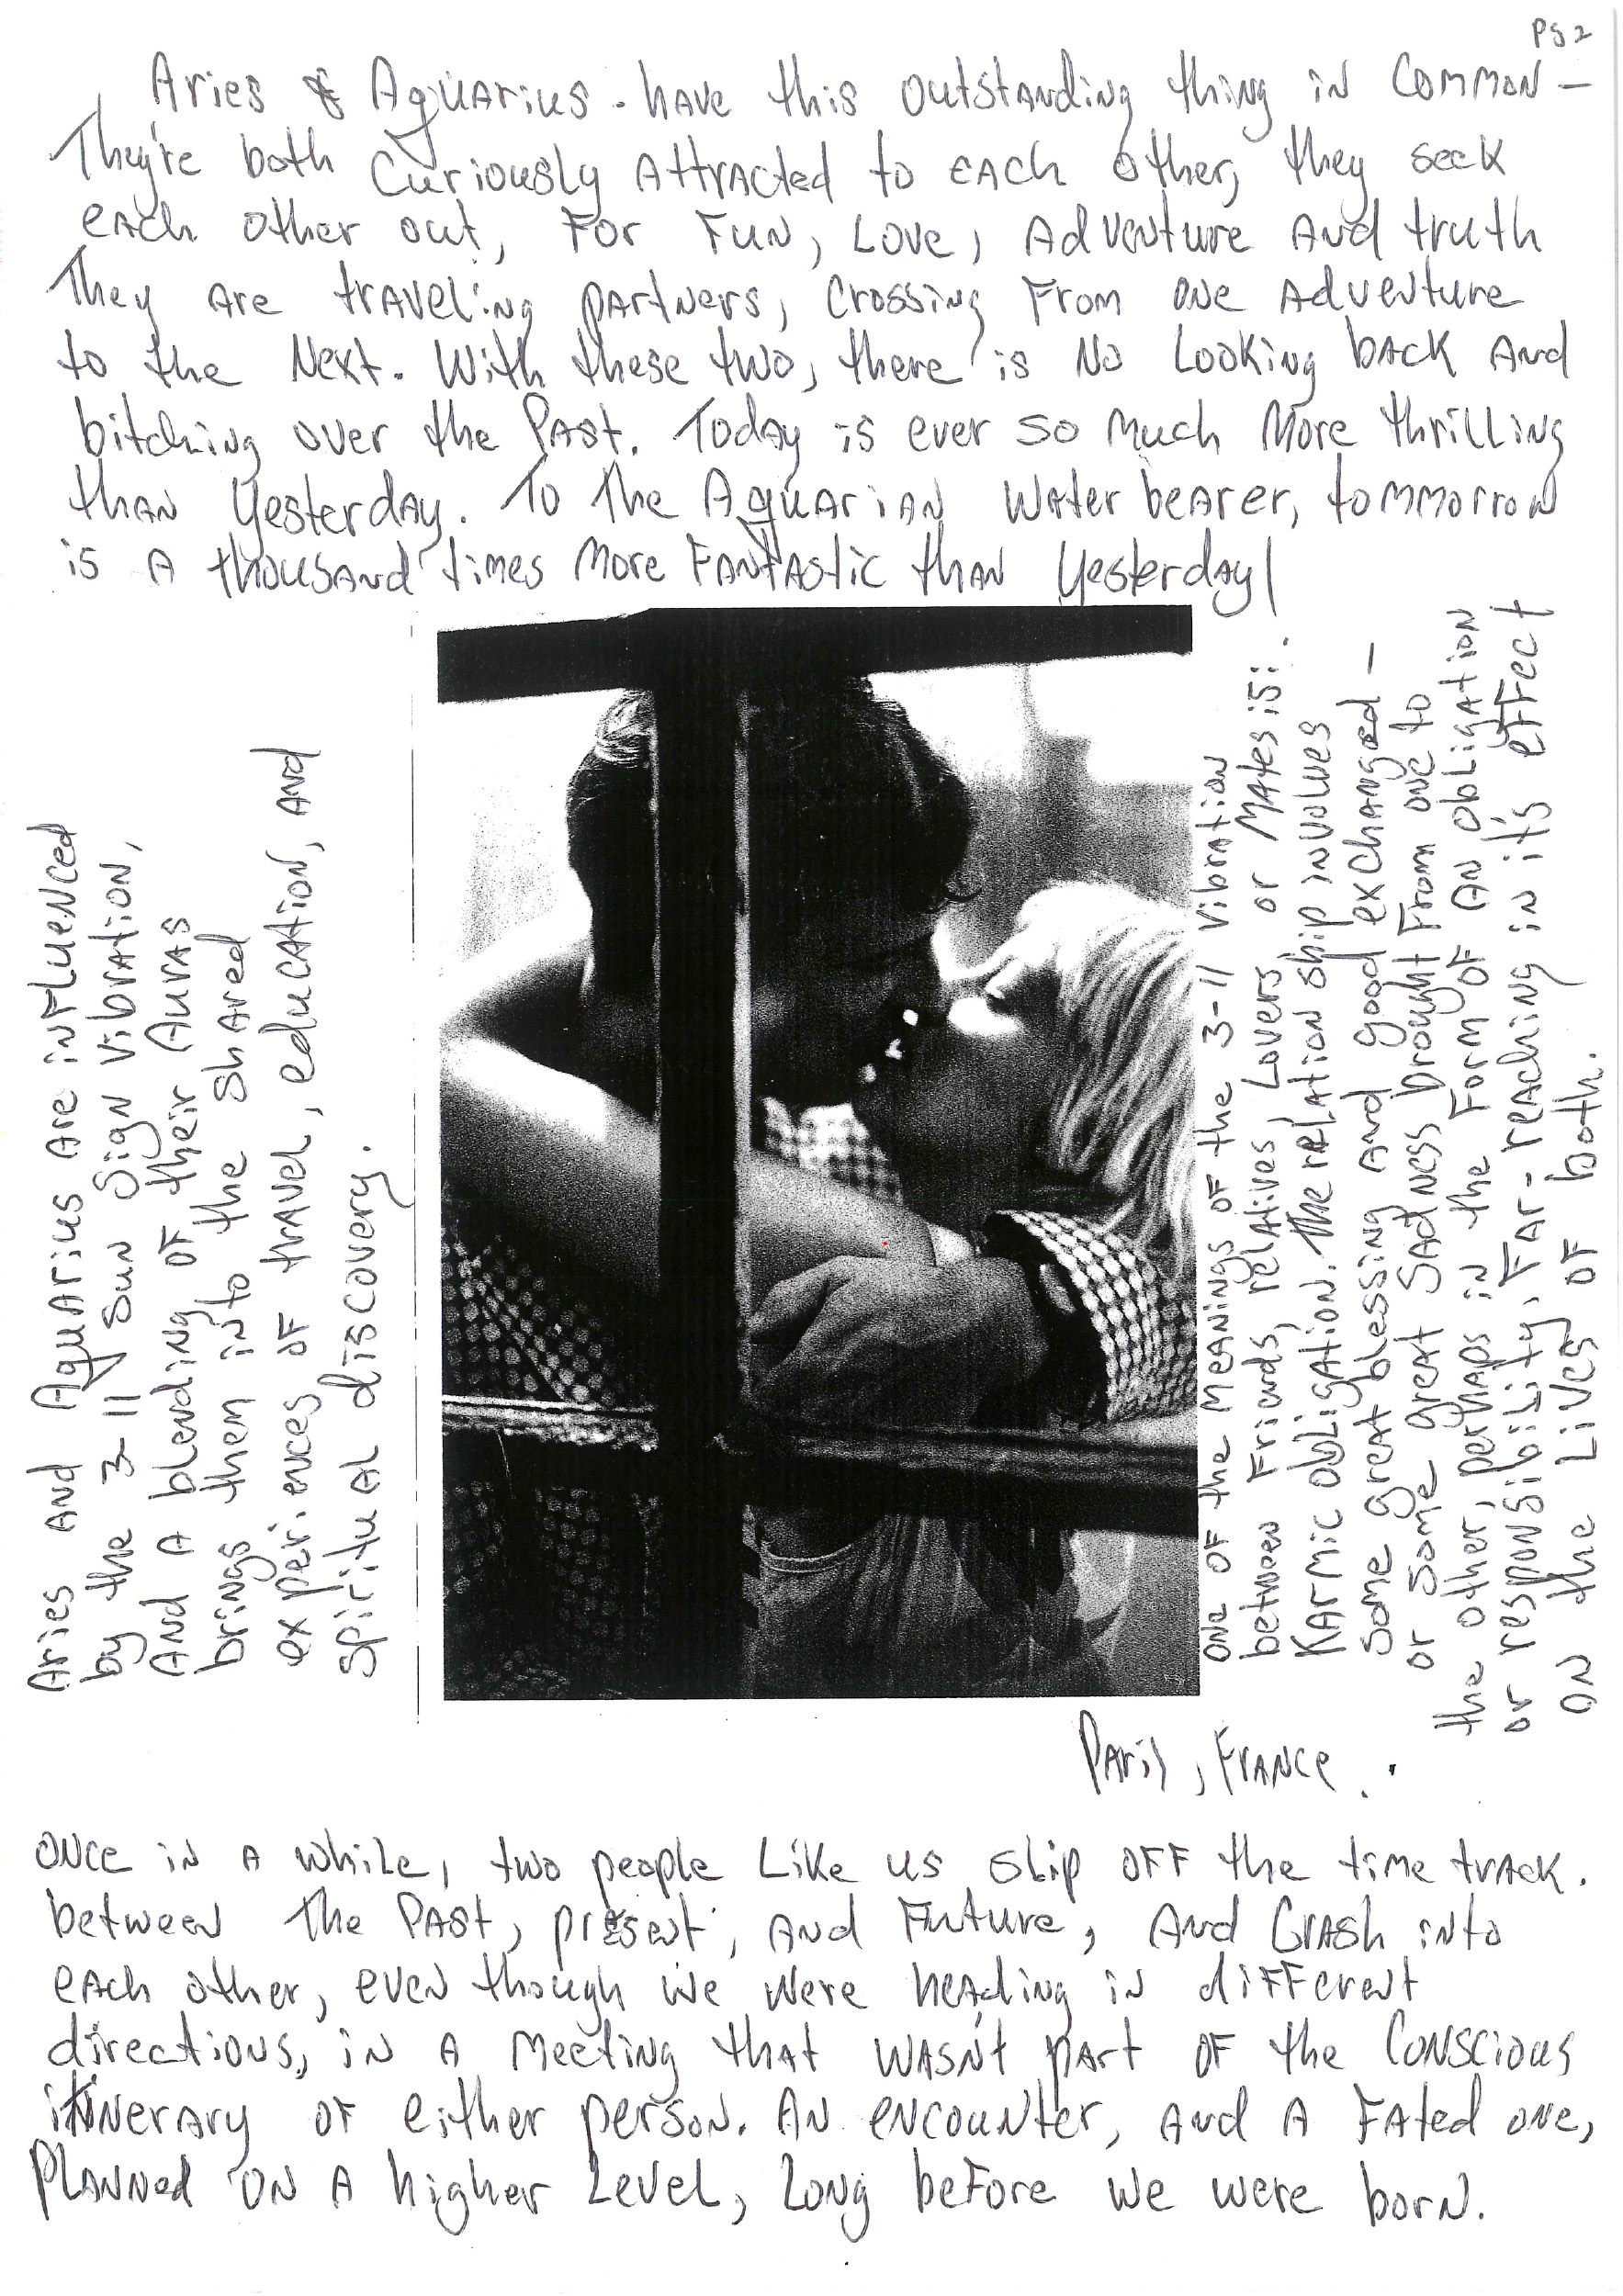 PG 2
Aries & Aquarius - have this outstanding thing in common -
They're both curiously attracted to each other, they seek
each other out, for fun, love, adventure and truth
They are traveling partners, crossing from one adventure
to the next. With these two, there is no looking back and
bitching over the past. Today is ever so much more thrilling
than yesterday. To the Aquarian Water bearer, tommorrow
is a thousand times more fantastic than yesterday!
Aries and Aquarius are influenced
by the 3-11 Sun Sign Vibration,
and a blending of their Auras
brings them into the shared
experiences of travel, education, and
spiritual discovery.
One of the meanings of the 3-11 Vibration
between Friends, relatives, Lovers or Mates is:.
Karmic obligation. The relation ship involves
some great blessing and good exchanged -
or some great sadness brought from one to
the other, perhaps in the form of an obligation
or responsibility, far-reaching in it's effect
on the lives of both.
Paris, France.
Once in a while, two people like us slip off the time track.
between the past, present, and future, and crash into
each other, even though we were heading in different
directions, in a meeting that wasn't part of the conscious
itinerary of either person. An encounter, and a fated one,
planned on a higher level, long before we were born.